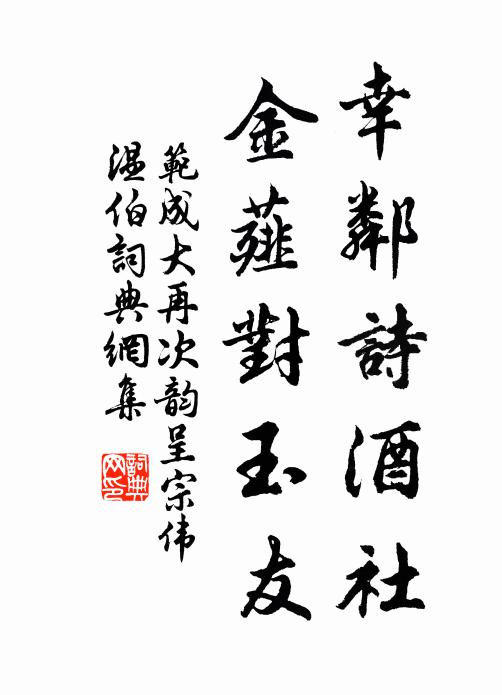 幸鄰詩酒社
金薤對玉友
範成大再次韵呈宗伟
溫伯詞典網集
詞典
网印